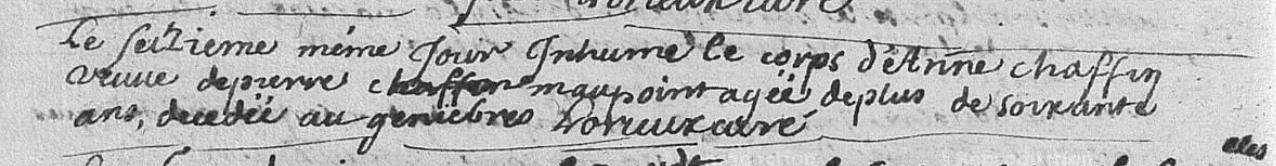 Le seizieme méme Jour Inhumé le corps d'Anne chaffin
veuue de pierre maupoint agéé de plus de soixante
ans, decedéé au geniebres Lorieux curé